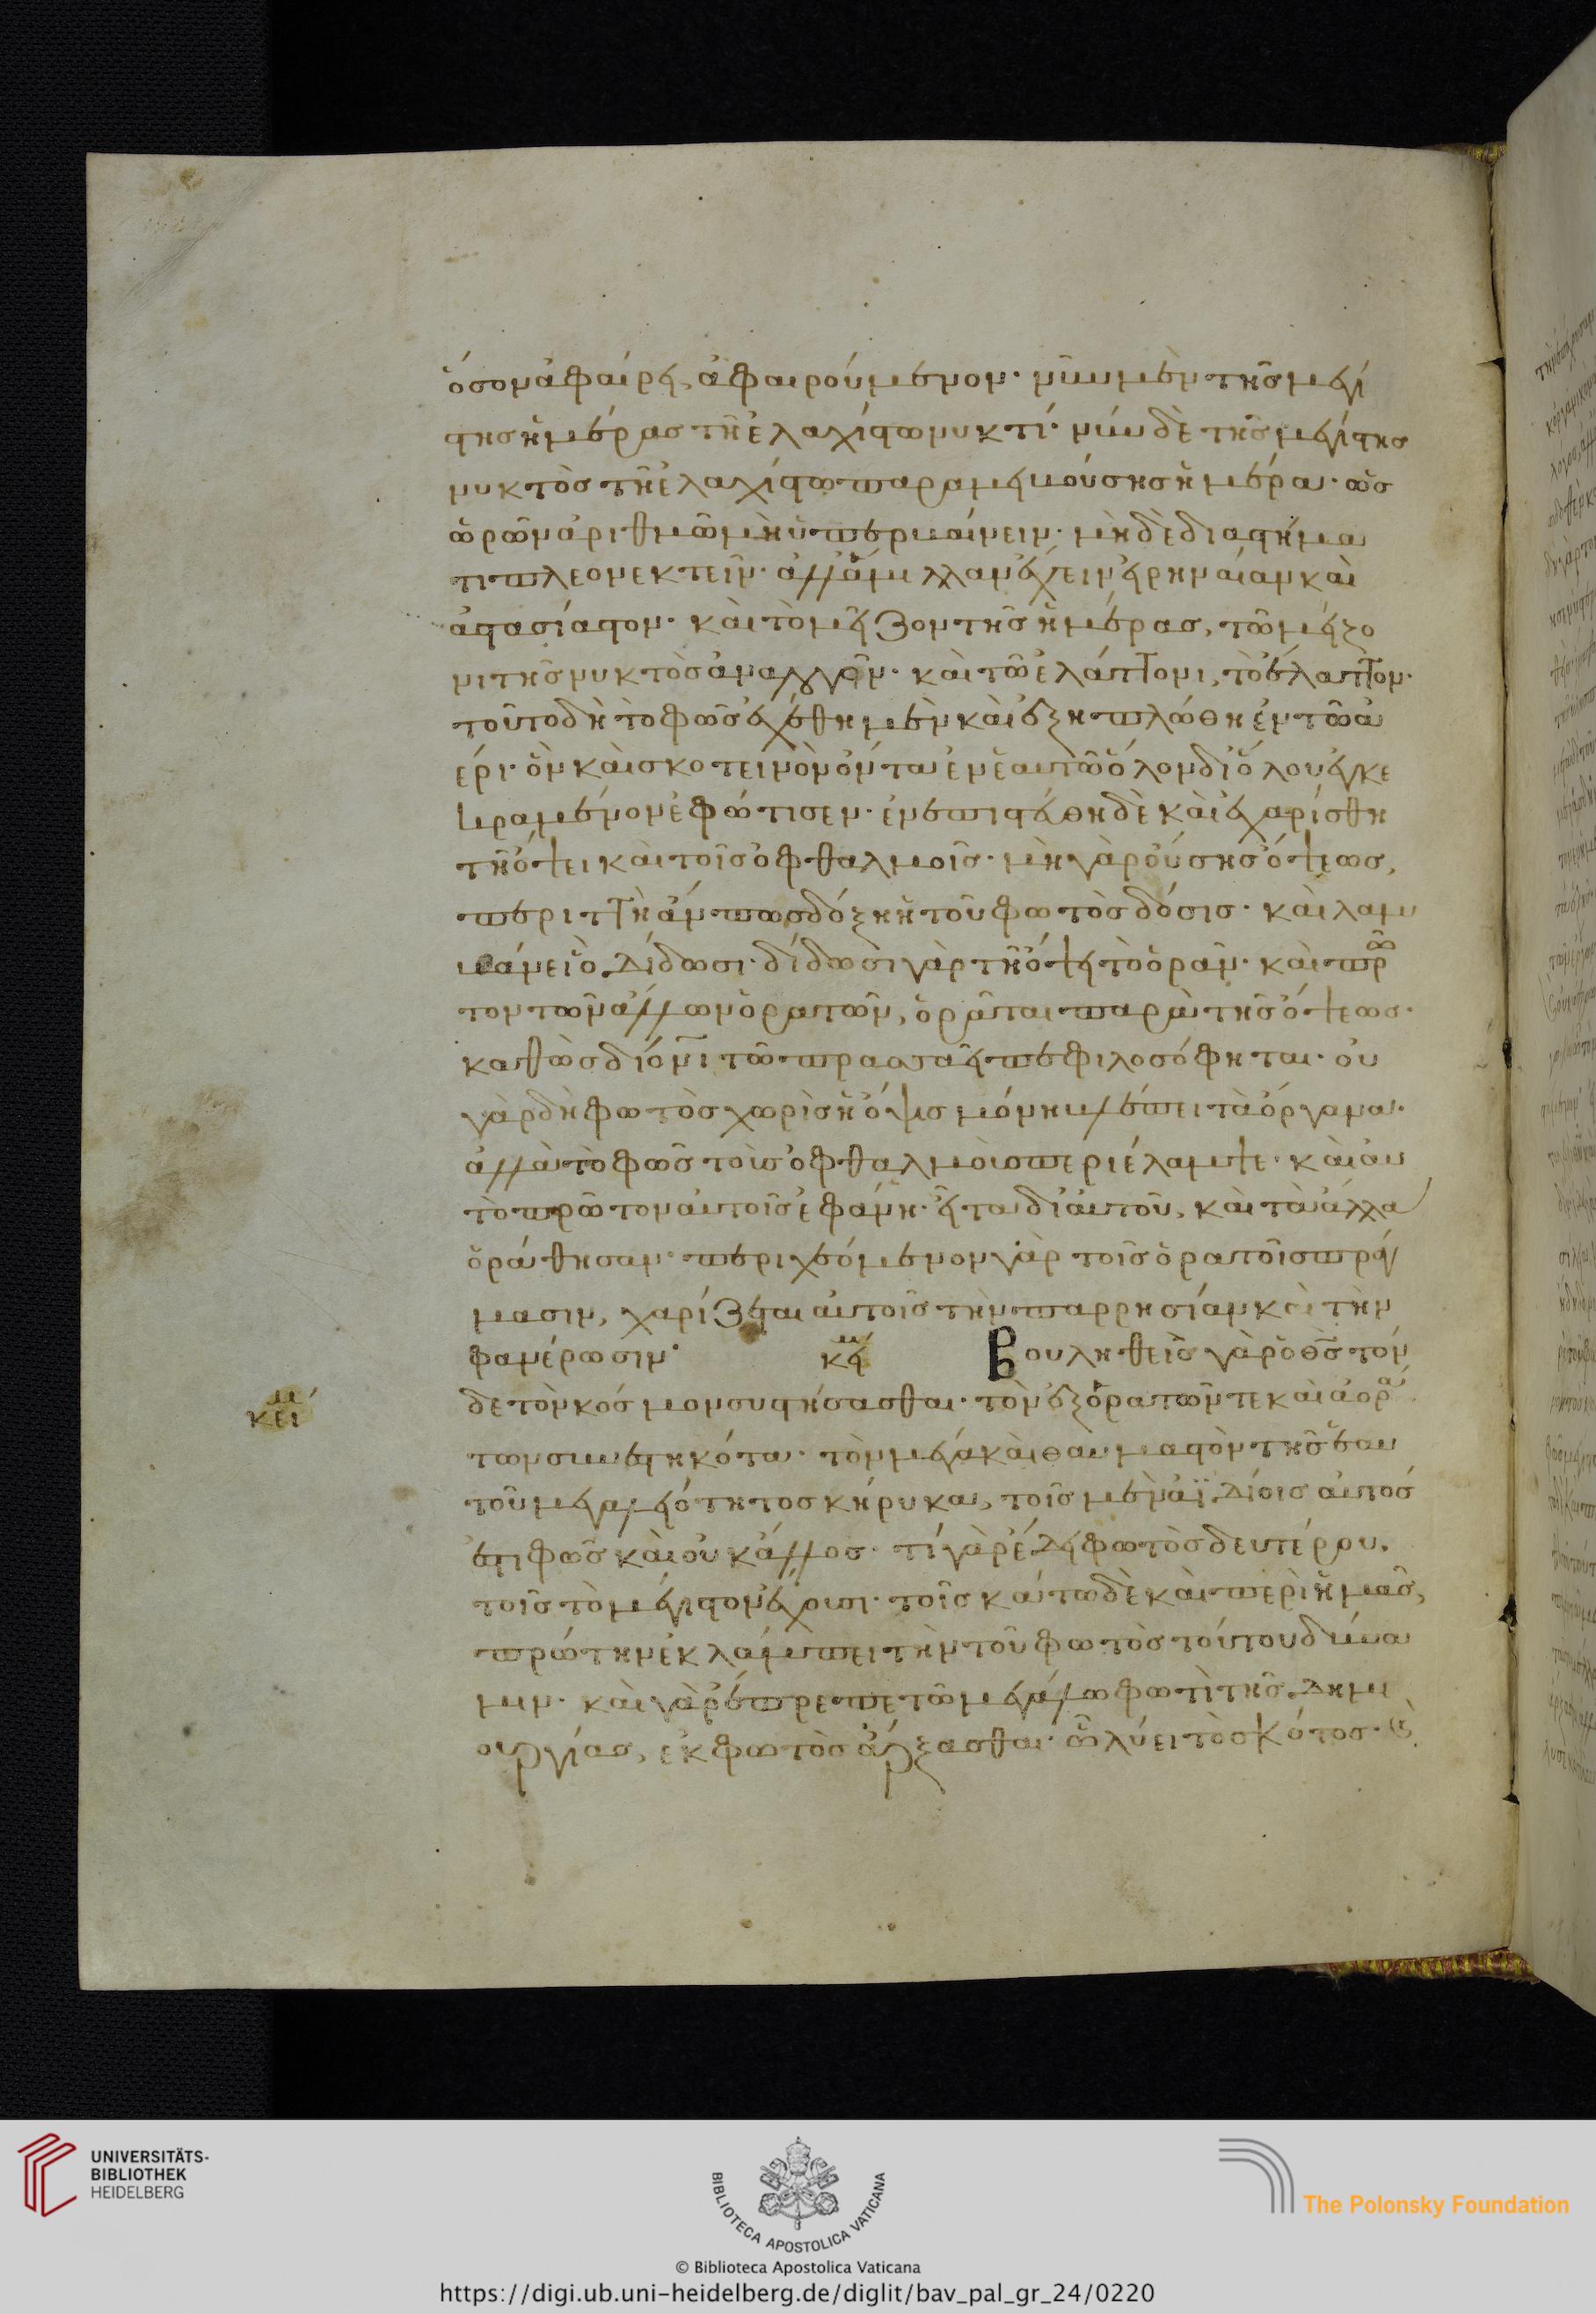 ὅσον ἀφαιρεῖ, ἀφαιρούμενον· νῦν μὲν τῆς μεγί
στης ἡμέρας τῆ ἐλαχίστω νυκτί· νῦν δὲ τῆς μεγίστης
νυκτὸς τῆ ἐλαχίστω παραμειβούσης ἡμέρα· ὡς
ὁρῶν ἀριθμῶ μὴ ὑπερβαίνειν· μὴ δὲ διαστήμα
τι πλεονεκτεῖν· ἀλλ' ἅμιλλαν ἔχειν εἰρηναίαν καὶ
ἀστασίαστον· καὶ τὸ μεῖζον τῆς ἡμέρας, τῶ μείζο
νι τῆς νυκτὸς ἀναλγεῖν· καὶ τῶ ἐλάττονι, τὸ ἔλαττον·
τοῦτο δὴ τὸ φῶς ἐχέθη μὲν καὶ ἐξηπλώθη ἐν τῶ ἀ
έρι· ὃν καὶ σκοτεινὸν ὄντα ἐν ἑαυτῶ ὅλον δι' ὅλου ἐγκε
κραμένον ἐφώτισεν· ἐνεπιστεύθη δὲ καὶ ἐχαρίσθη
τῆ ὄψει καὶ τοῖς ὀφθαλμοῖς· μὴ γὰρ οὔσης ὄψεως,
περιττὴ ἄν πως δόξη ἡ τοῦ φωτὸς δόσις· καὶ λαμ
βάνει ὃ δίδωσι· δίδωσι γὰρ τῆ ὄψει τὸ ὁρᾶν· καὶ πρῶ
τον τῶν ἄλλων ὁρατῶν, ὁρᾶται παρὰ τῆς ὄψεως·
καθὼς
γὰρ δὴ φωτὸς χωρὶς ἡ ὄψις μόνη βλέπει τὰ ὄργανα·
ἀλλὰ τὸ φῶς τοῖς ὀφθαλμοῖς περιέλαμψε· καὶ αυ
τὸ πρῶτον αὐτοῖς ἐφάνη· εἶτα δι' αὐτοῦ, καὶ τὰ ἄλλα
ὁράθησαν· περιχεόμενον γὰρ τοῖς ὁρατοῖς πράγ
μασιν, χαρίζεται αὐτοῖς τὴν παρρησίαν καὶ τὴν
φανέρωσιν· κεί Βουληθεὶς γὰρ ὁ θς τόν
δε τὸν κόσμον συστήσασθαι· τὸν ἐξ ὁρατῶν τε καὶ ἀορά
των συνεστηκότα· τὸν μέγα καὶ θαυμαστὸν τῆς ἑαυ
τοῦ μεγαλειότητος κήρυκα, τοῖς μὲν ἀϊδίοις αὐτός
ἐστι φῶς καὶ οὐκ ἄλλος· τί γὰρ ἔδει φωτὸς δευτέρου.
τοῖς τὸ μέγιστον ἔχουσι· τοῖς κάτω δὲ καὶ περὶ ἡμᾶς,
πρώτην ἐκλάμπει τὴν τοῦ φωτὸς τούτου δύνα
μιν· καὶ γὰρ ἔπρεπε τῶ μεγάλω φωτὶ τῆς δημι
ουργίας, ἐκ φωτὸς ἄρξασθαι· ὧ λύει τὸ σκότος· καὶ
κεί
UNIVERSITÄTS-
BIBLIOTHEK
HEIDELBERG
BIBLIOTECA APOSTOLICA VATICANA
The Polonsky Foundation
© Biblioteca Apostolica Vaticana
https://digi.ub.uni-heidelberg.de/diglit/bav_pal_gr_24/0220